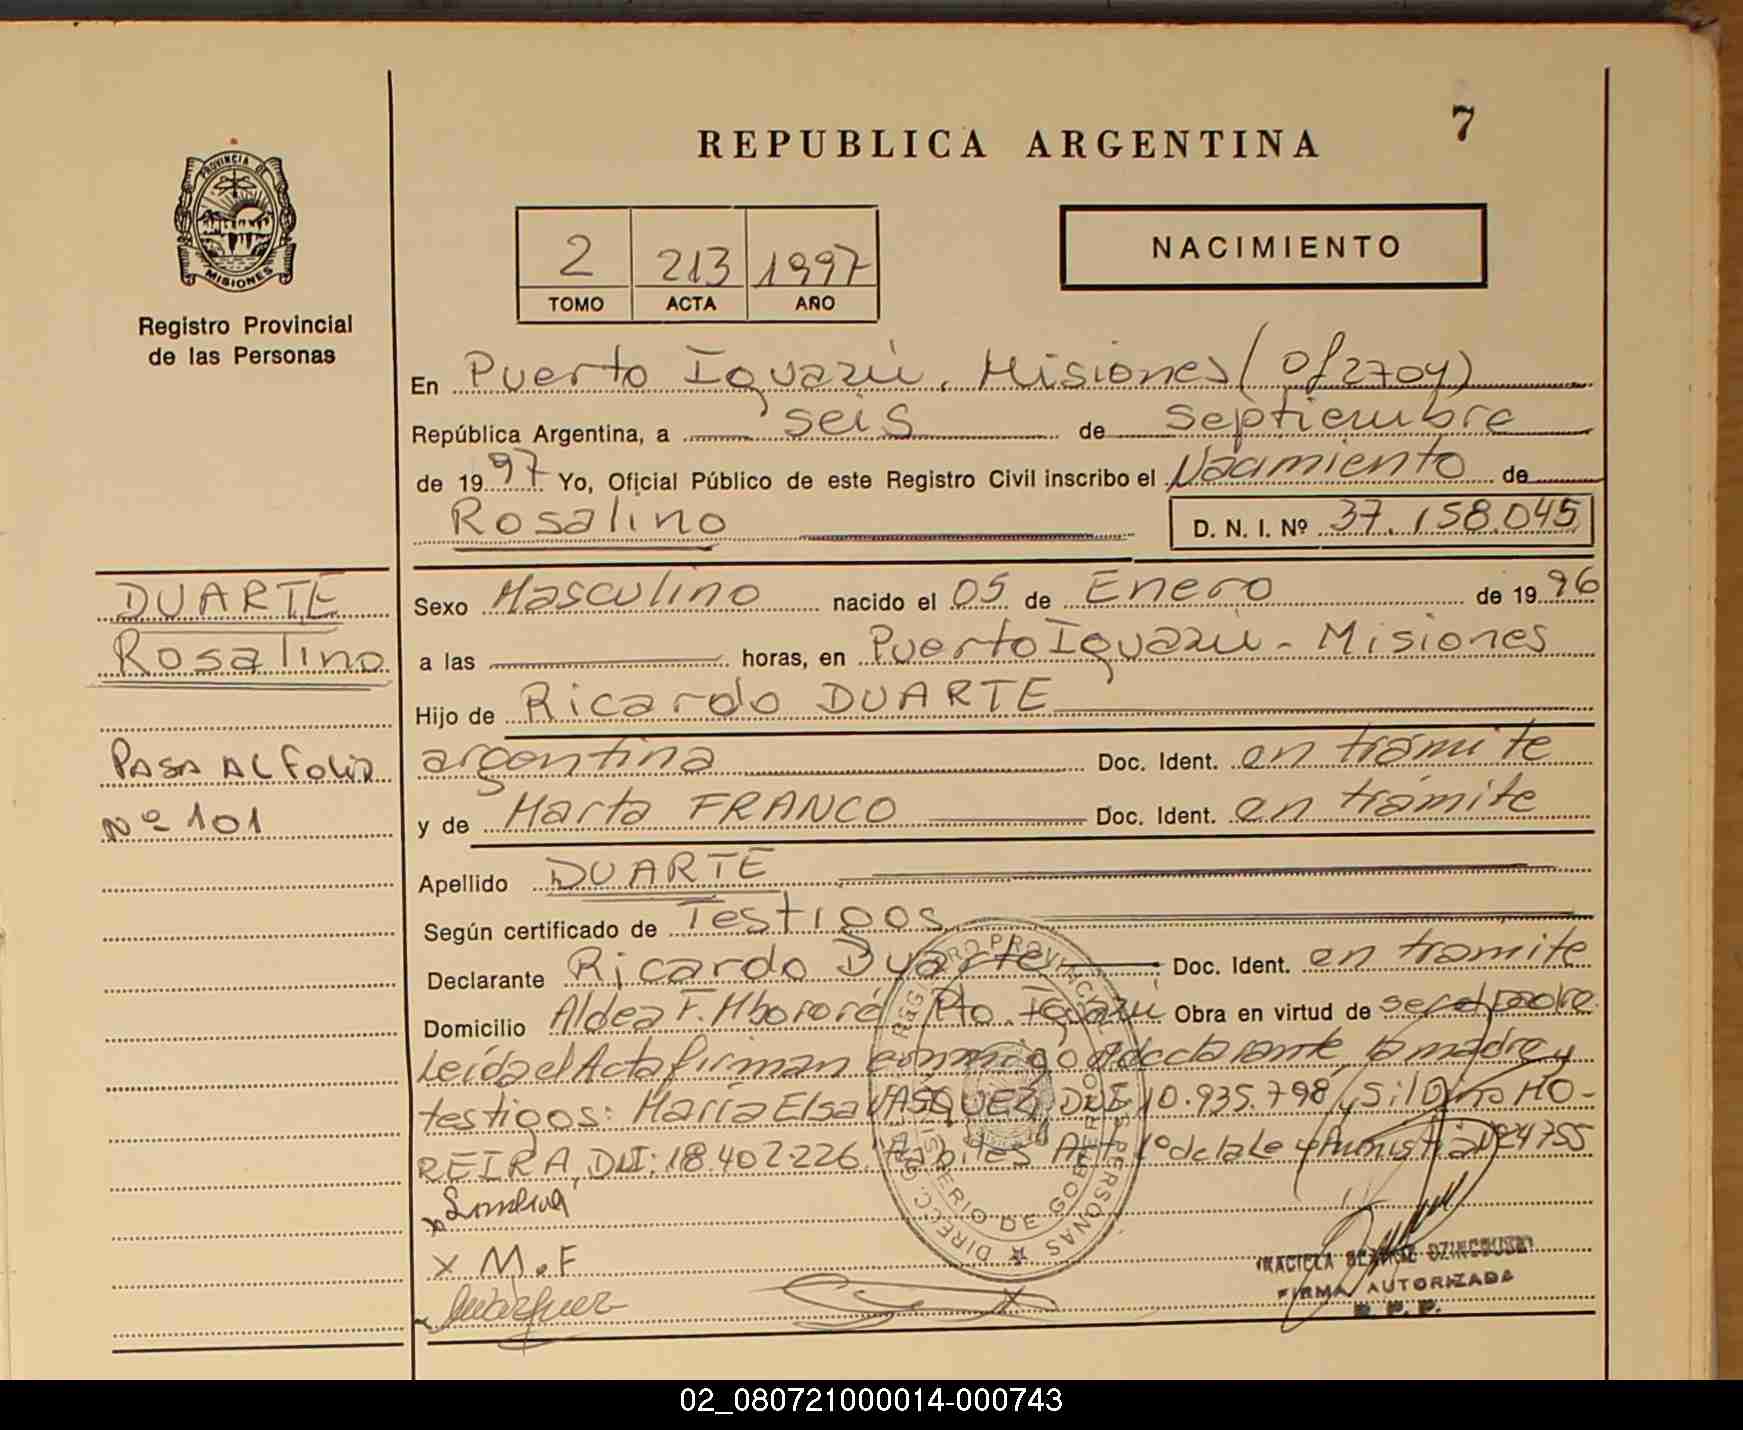 REPUBLICA ARGENTINA
7
PROVINCIA DE
MISIONES
Registro Provincial
de las Personas
2 213 1997
TOMO ACTA AÑO
NACIMIENTO
En Puerto Iguazú. Misiones (Of 2704)
República Argentina, a seis de septiembre
de 1997 Yo, Oficial Público de este Registro Civil inscribo el Nacimiento de
Rosalino D. N. I. Nº 37.158.045
DUARTE
Rosalino
PASA AL FOLIO
Nº 101
Sexo Masculino nacido el 05 de Enero de 1996
a las horas, en Puerto Iguazú - Misiones
Hijo de Ricardo DUARTE
argentina Doc. Ident. en trámite
y de Marta FRANCO Doc. Ident. en trámite
Apellido DUARTE
Según certificado de Testigos
Declarante Ricardo Duarte Doc. Ident. en tramite
Domicilio Aldea F. Mbororé Pto. Iguazú Obra en virtud de ser el padre
Leída el Acta firman conmigo el declarante, la madre y
testigos: María Elsa VASQUEZ, DNI 10.935.798, Silvino MO-
REIRA, DNI: 18.402.226. Hábiles Art 1º de la Ley 24755
x M.F
REGISTRO PROVINCIAL PERSONAS
MINISTERIO DE GOBIERNO
DIRECC. GRAL.
FIRMA AUTORIZADA
R. P. P.
02_080721000014-000743